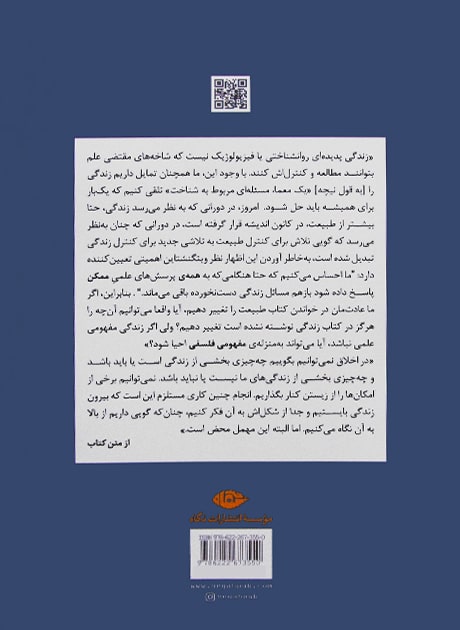 «زندگی پدیده‌ای روانشناختی یا فیزیولوژیک نیست که شاخه‌های مقتضی علم
بتوانند مطالعه و کنترل‌اش کنند. با وجود این، ما همچنان تمایل داریم زندگی
را [به قول نیچه] «یک معما، مسئله‌ای مربوط به شناخت» تلقی کنیم که یک‌بار
برای همیشه باید حل شود. امروز، در دورانی که به نظر می‌رسد زندگی، حتا
بیشتر از طبیعت، در کانون اندیشه قرار گرفته است، در دورانی که چنان به‌نظر
می‌رسد که گویی تلاش برای کنترل طبیعت به تلاشی جدید برای کنترل زندگی
تبدیل شده است، به‌خاطر آوردن این اظهار نظر ویتگنشتاین اهمیتی تعیین‌کننده
دارد: "ما احساس می‌کنیم که حتا هنگامی‌که به همه‌ی پرسش‌های علمی ممکن
پاسخ داده شود بازهم مسائل زندگی دست‌نخورده باقی می‌ماند.". بنابراین، اگر
ما عادت‌مان در خواندن کتاب طبیعت را تغییر دهیم، آیا واقعا می‌توانیم آن‌چه را
هرگز در کتاب زندگی نوشته نشده است تغییر دهیم؟ ولی اگر زندگی مفهومی
علمی نباشد، آیا می‌تواند به‌منزله‌ی مفهومی فلسفی احیا شود؟»
«در اخلاق نمی‌توانیم بگوییم چه‌چیزی بخشی از زندگی است یا باید باشد
و چه‌چیزی بخشی از زندگی‌های ما نیست یا نباید باشد. نمی‌توانیم برخی از
امکان‌ها را از زیستن کنار بگذاریم. انجام چنین کاری مستلزم این است که بیرون
زندگی بایستیم و جدا از شکل‌اش به آن فکر کنیم، چنان‌که گویی داریم از بالا
به آن نگاه می‌کنیم. اما البته این مهمل محض است.»
از متن کتاب
موسسه انتشارات نگاه